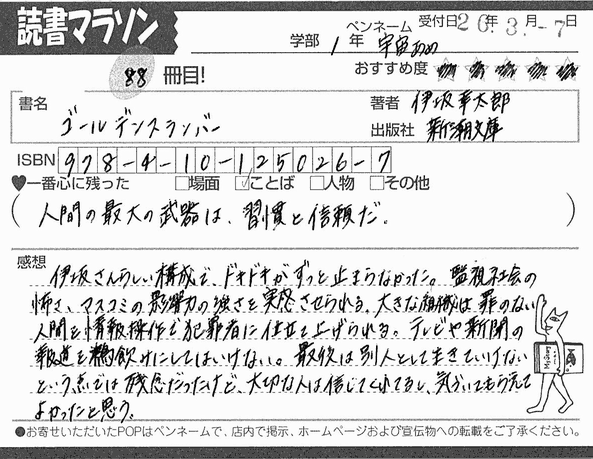 読書マラソン
学部 1年 ペンネーム 宇宙あめ 受付日 26年 3月 -7日
88 冊目! おすすめ度
書名 ゴールデンスランバー 著者 伊坂幸太郎
出版社 新潮文庫
ISBN 978-4-10-125026-7
♥一番心に残った □場面 ☑ことば □人物 □その他
( 人間の最大の武器は、習慣と信頼だ。 )
感想
伊坂さんらしい構成で、ドキドキがずっと止まらなかった。監視社会の
怖さ、マスコミの影響力の強さを実感させられる。大きな組織は罪のない
人間を情報操作で犯罪者に仕立て上げられる。テレビや新聞の
報道を鵜飲みにしてはいけない。最後は別人として生きていけない
という点では残念だったけど、大切な人は信じてくれてるし、気づいてもらえて
よかったと思う。
●お寄せいただいたPOPはペンネームで、店内で掲示、ホームページおよび宣伝物への転載をご了承ください。